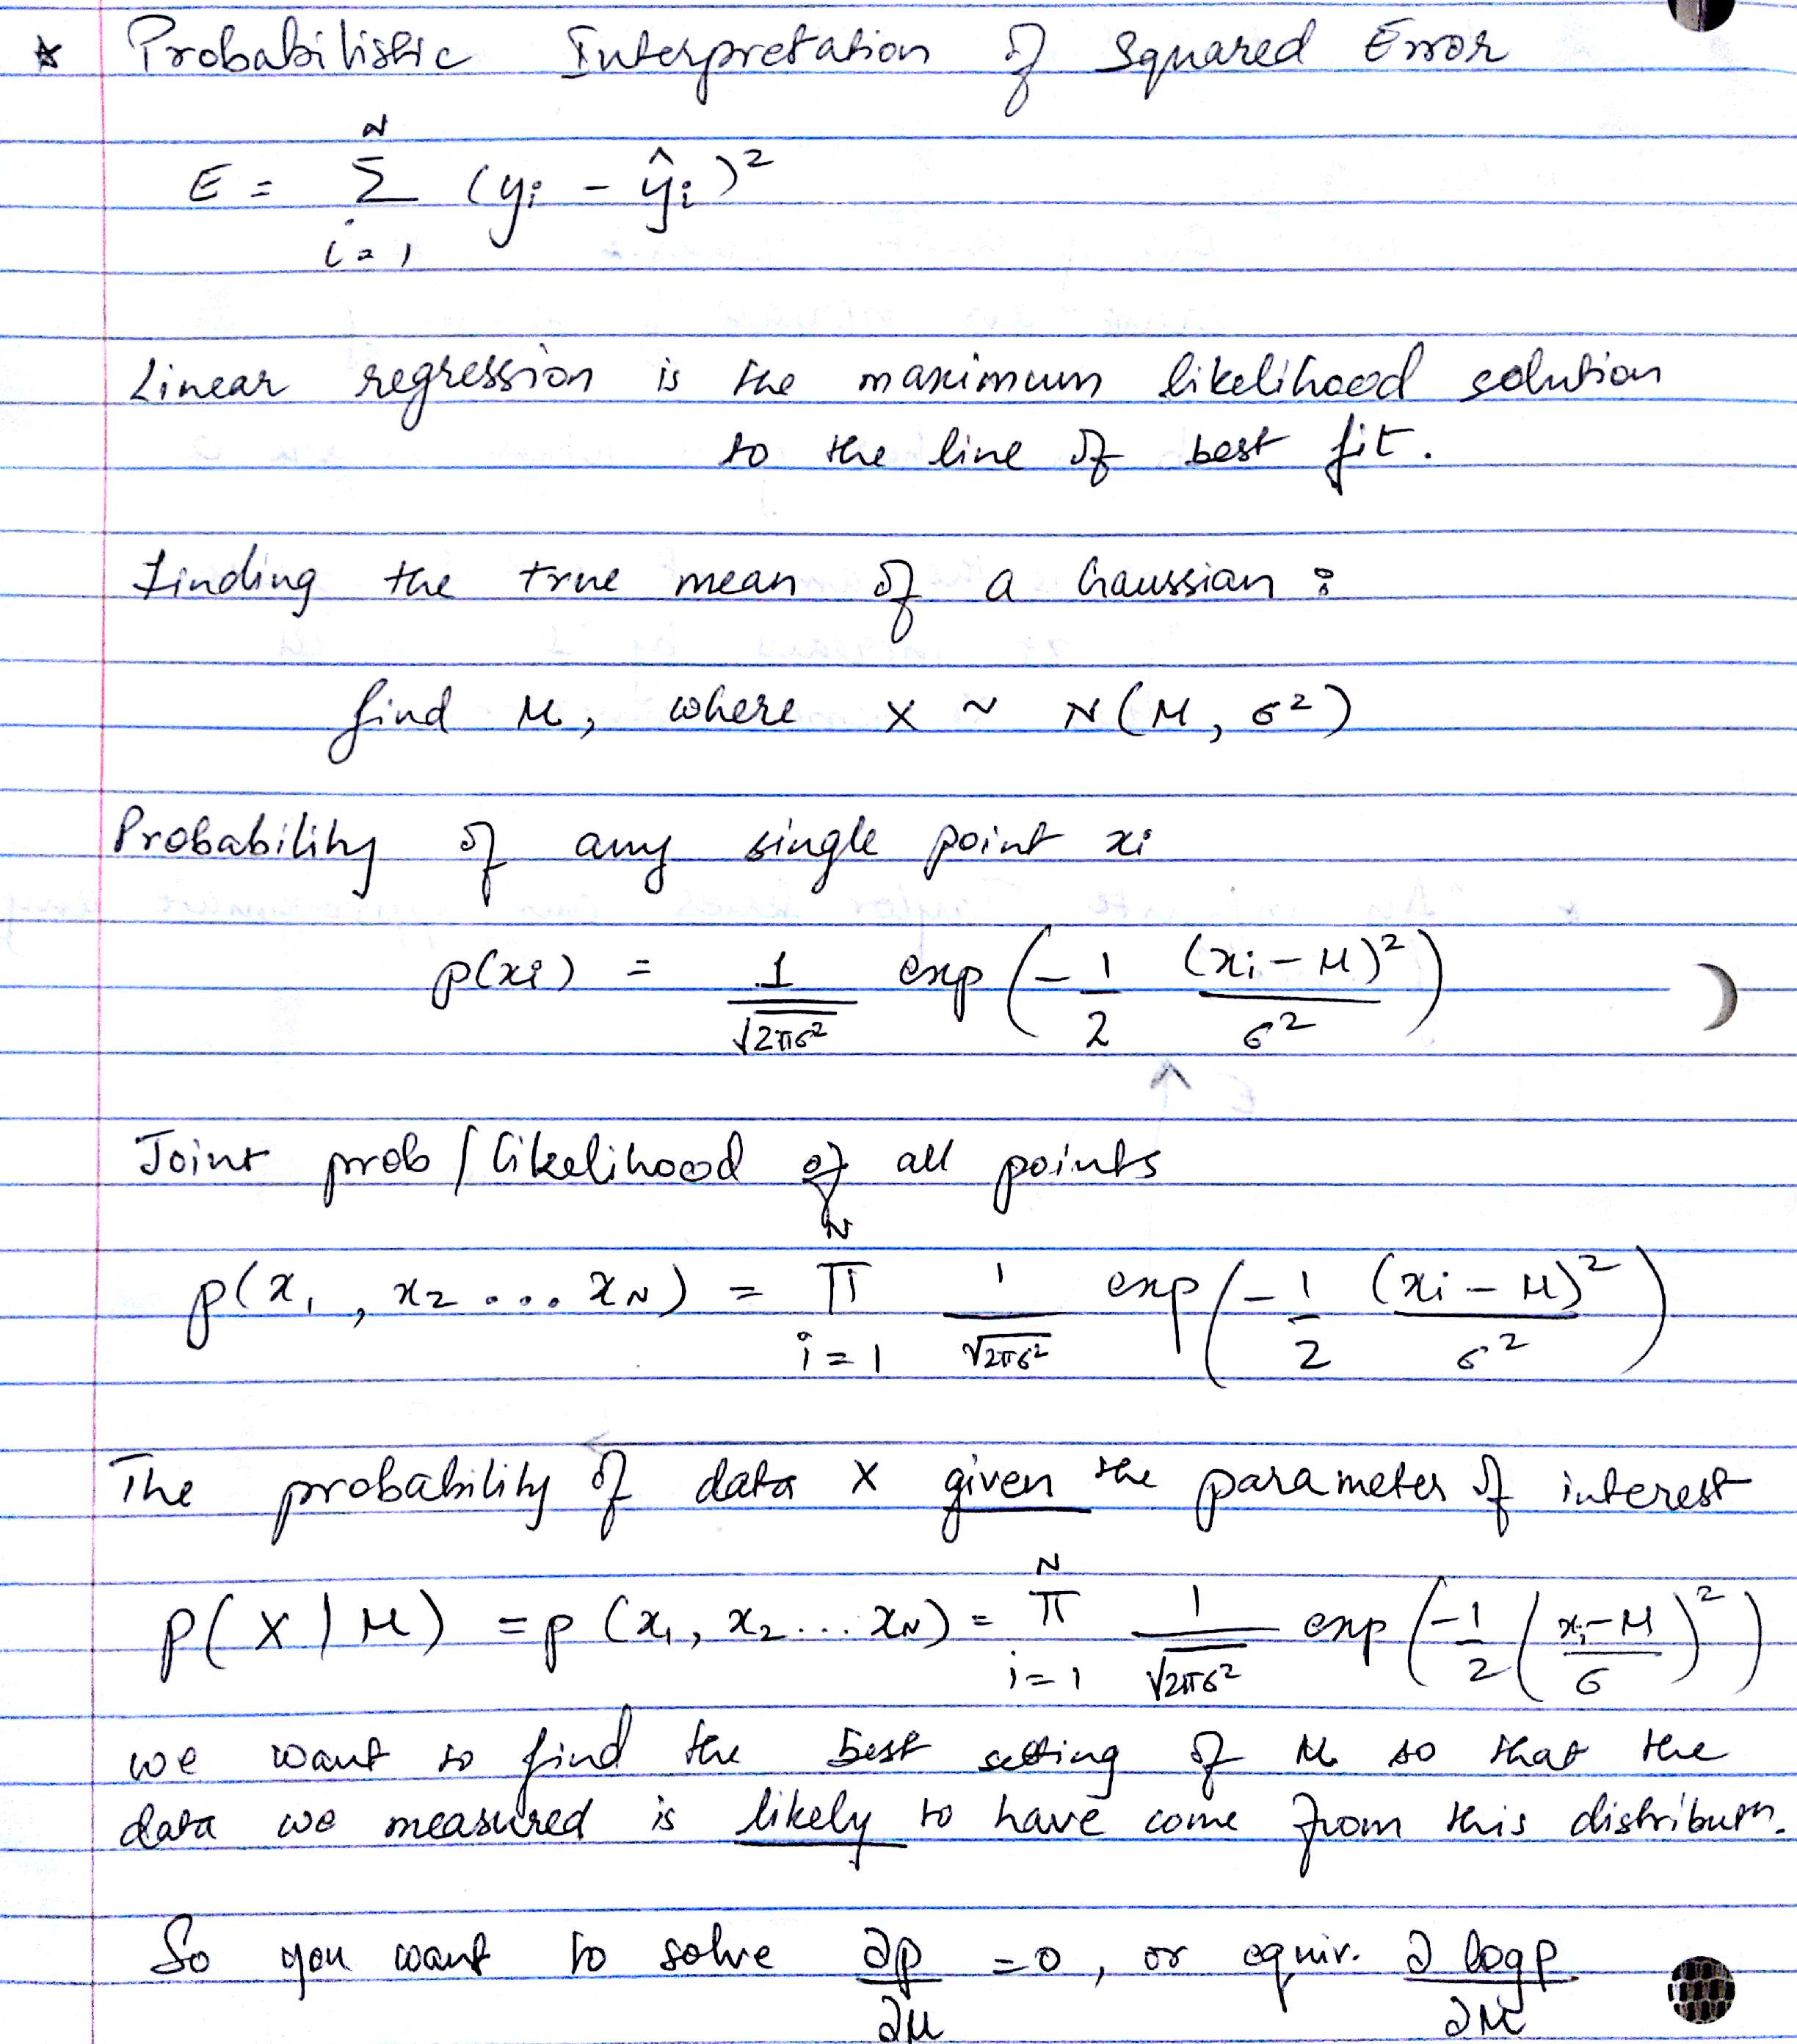 * Probabilistic Interpretation of Squared Error
E = Σ_{i=1}^{N} (yi - ŷi)²
Linear regression is the maximum likelihood solution
to the line of best fit.
Finding the true mean of a Gaussian :
find μ, where X ~ N(μ, σ²)
Probability of any single point xi
p(xi) = 1/√(2πσ²) exp(-1/2 (xi-μ)²/σ²)
Joint prob / likelihood of all points
p(x1, x2 ... xN) = Π_{i=1}^{N} 1/√(2πσ²) exp(-1/2 (xi-μ)²/σ²)
The probability of data X given the parameter of interest
p(X | μ) = p(x1, x2 ... xN) = Π_{i=1}^{N} 1/√(2πσ²) exp(-1/2 ((xi-μ)/σ)²)
we want to find the best setting of μ so that the
data we measured is likely to have come from this distributn.
So you want to solve ∂p/∂μ = 0, or equiv. ∂ log p/∂μ